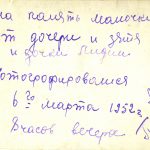 на память мамочки
от дочери и зятя
и дочки Лидии
Фотографировались
6го марта 1952г.
8 часов вечера